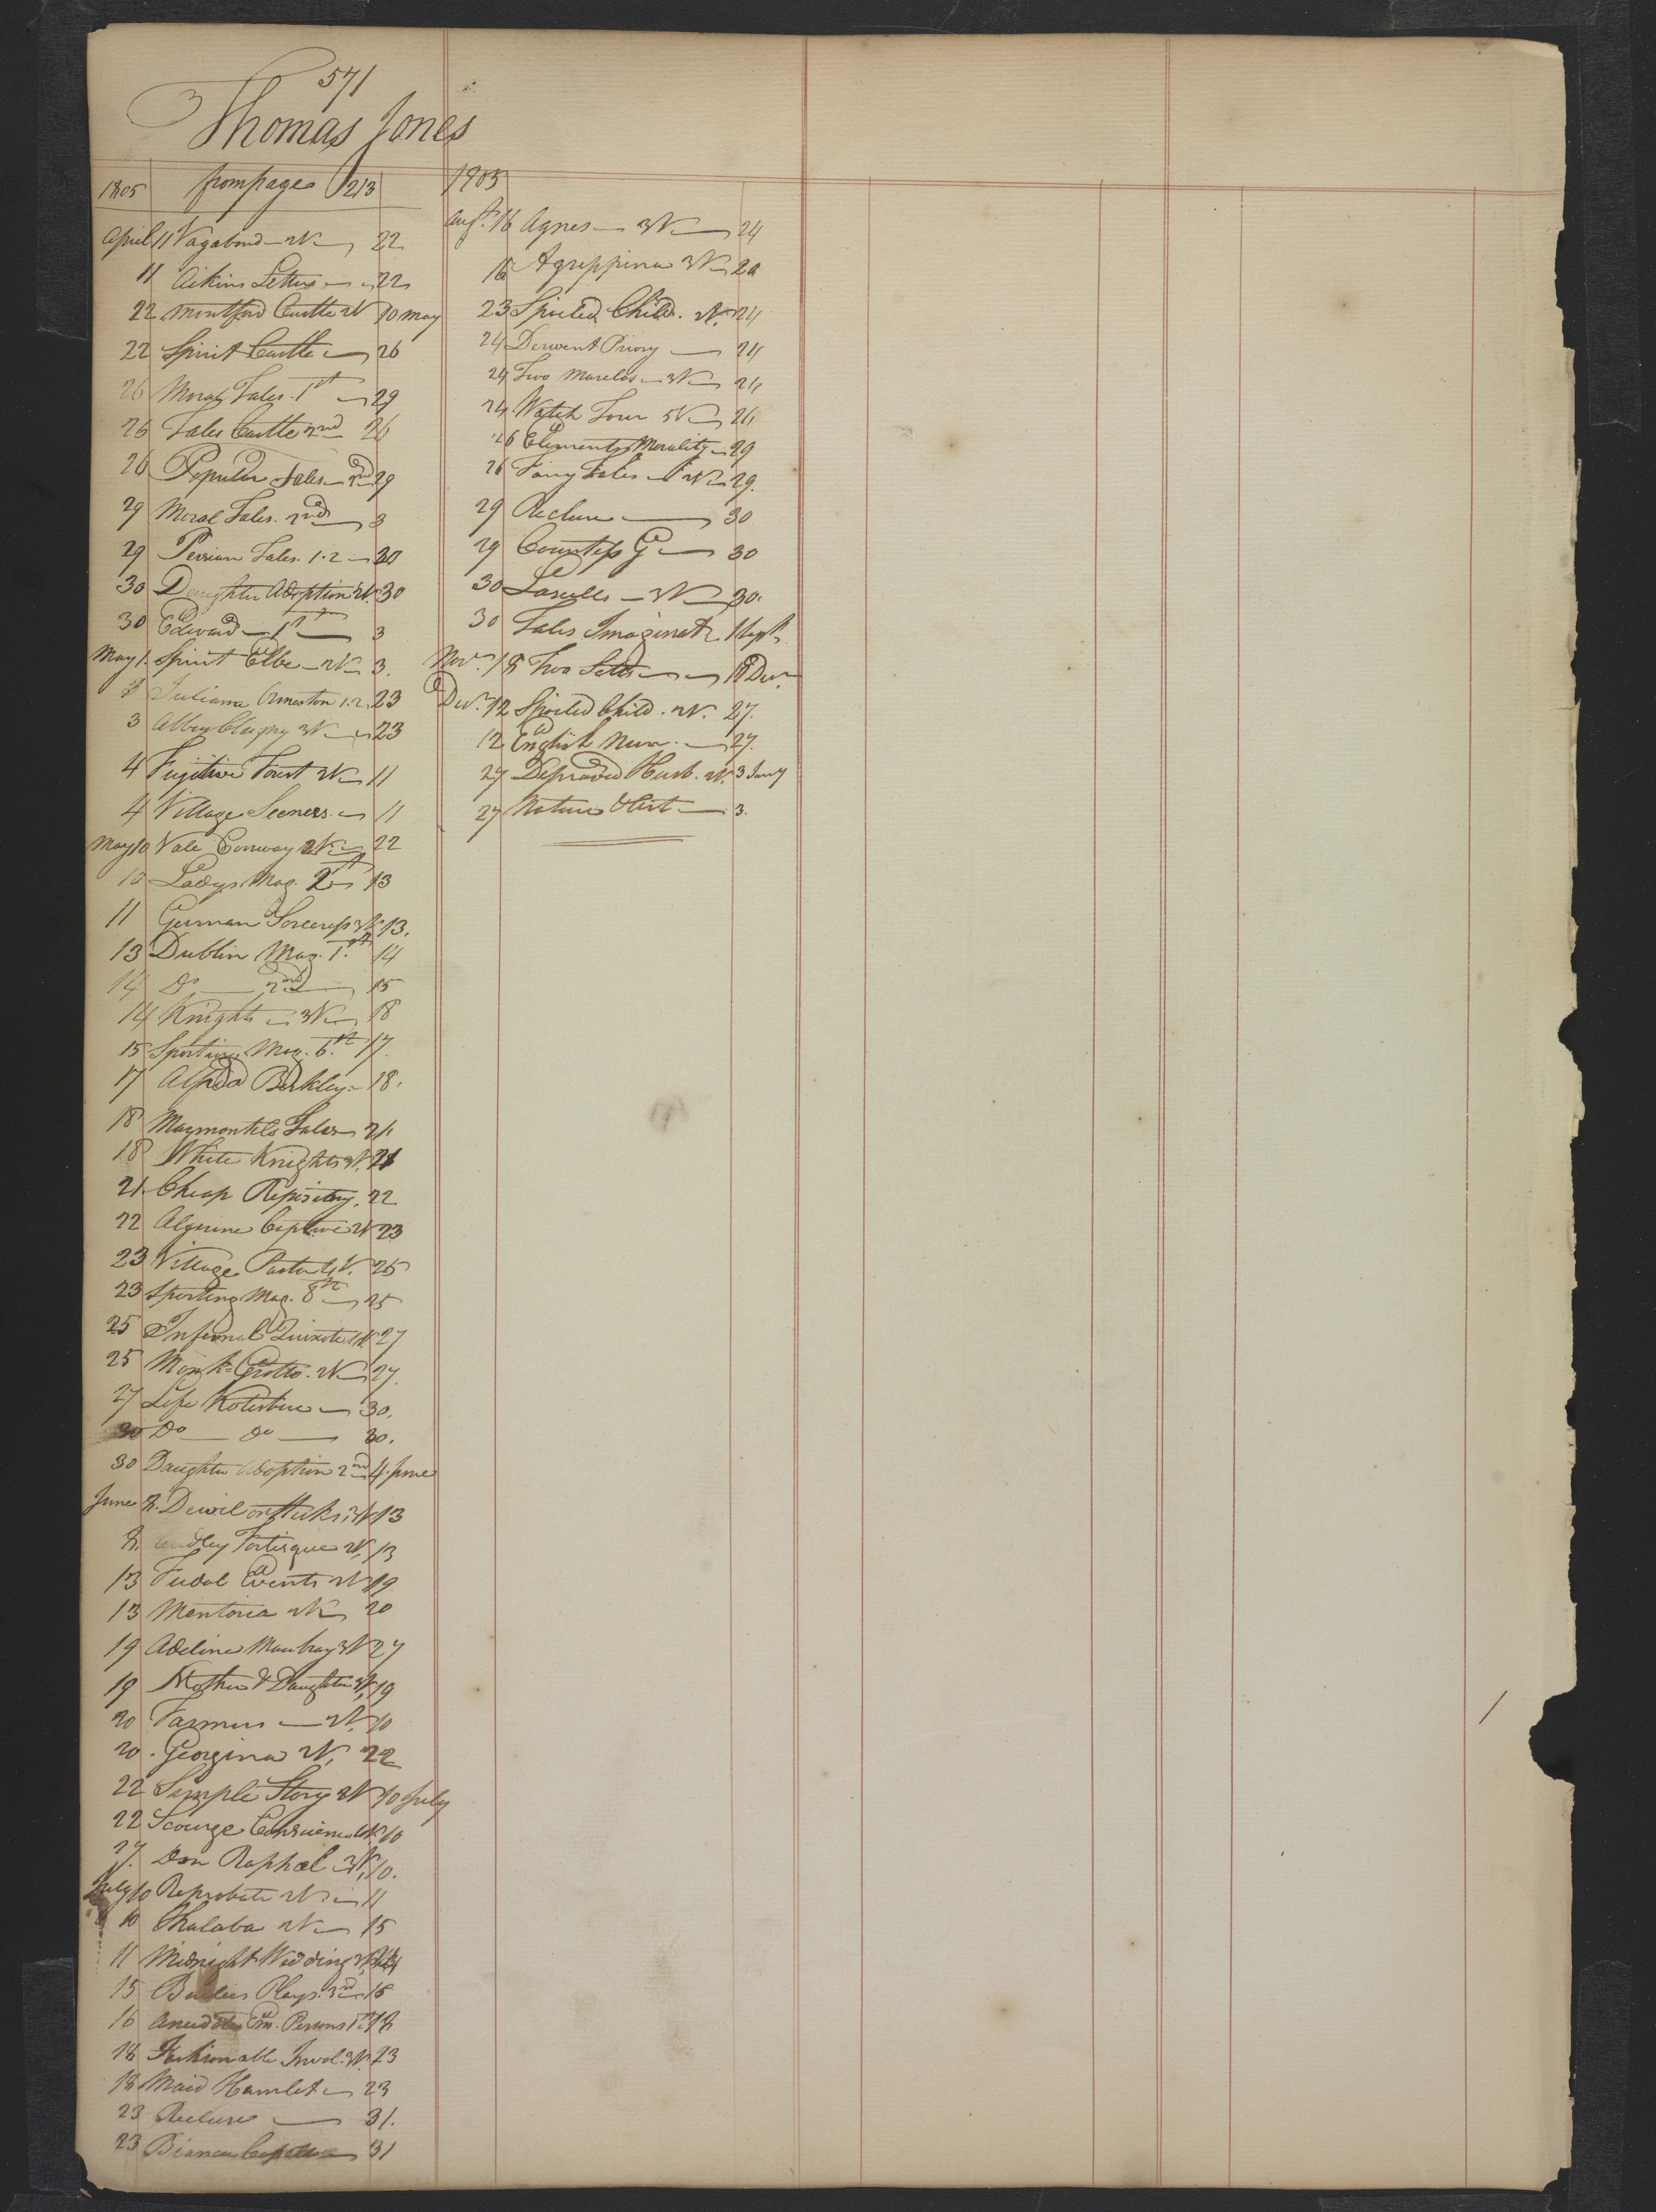 571
Thomas Jones
1805 from page 213
April 11 Vagabond - 2V - 22
11 Aikins Letters - 22
22 Montford Castle 2V 10 May
22 Spirit Castle - 26
26 Moral Tales. 1st - 29
26 Tales Castle 2nd 26
26 Popular Tales - 2nd 29
29 Moral Tales. 2nd 3
29 Persian Tales. 1.2 - 30
30 Daughter Adoption 2V. 30
30 Edward - 1st - 3
May 1. Spirit Elbe - 2V - 3.
Juliana Ormeston 1.2. 23
3 Abbey Clugny 3V - 23
4 Fugitive Forest 2V - 11
4 Village Sceners. - 11
May 10 Vale Conway 2V - 22
10 Ladys Mag. 13
11 German Sorceress 3V. 13.
13 Dublin Mag. 1.st 14
14 Do - 2nd 15
14 Knights - 3V - 18
15 Sporting Mag. 6.th 17.
17 Alfred Berkley - 18.
18 Marmontels Tales - 21
18 White Knights 3V. 21
21. Cheap Repisitory. 22
22 Algerine Captive 2V 23
23 Village Pastor 4V. 25
23 Sporting Mag. 8th - 25
25 Infernal Quixote 4V. 27
25 Monk - Grotto. 2V - 27.
27 Life Kotzebue - 30.
30 Do - do - 30.
30 Daughter Adoption 2nd 4. June
June 8. Devil on Sticks. 3V 13
8. Audley Fortisque 2V. 13
13 Fudal Events 2V 19.
13 Mentoria 2V - 20
19 Adeline Mowbray 3V 27
19 Mother & Daughter 3V. 19
20 2V.
20. Georgina 2V. 22
22 Simple Story 2V 10 July
22 Scourge Conscience 4V. 10
27. Don Raphael 3V. 10.
July 10 Reprobate 2V - 11
10 Thalaba 2V - 15
11 Midnight Wedding 3V.
15 Plays. 3rd - 16
16 Anecdotes Em. Persons 1st 18
18 Fashionable Invol. 3V. 23
18 Maid Hamlet - 23
23 Recluse - 31.
23 Bianca Capello 31
1805
Augt. 16 Agnes - 3V - 24
16 Agrippina 3V -
23 Spoiled Child. 2V. 24
24 Derwent Priory - 24
24 Two Marilas - 3V - 24
24 Watch Tower 5V - 26
26 Elements Morality - 29
26 Fairy Tales - 2V - 29.
29 Recluse - 30
29 Countess G - 30
30 Lascelles - 3V - 30.
30 Tales Imaginatn 1 Sept.
Novr. 18 Two - 18 Decr.
Decr. 12 Spoiled Child. 2V. 27.
12 English Nun. - 27.
27 Depraved Husb. 2V. 3 Jany
27 Nature & Art - 3.